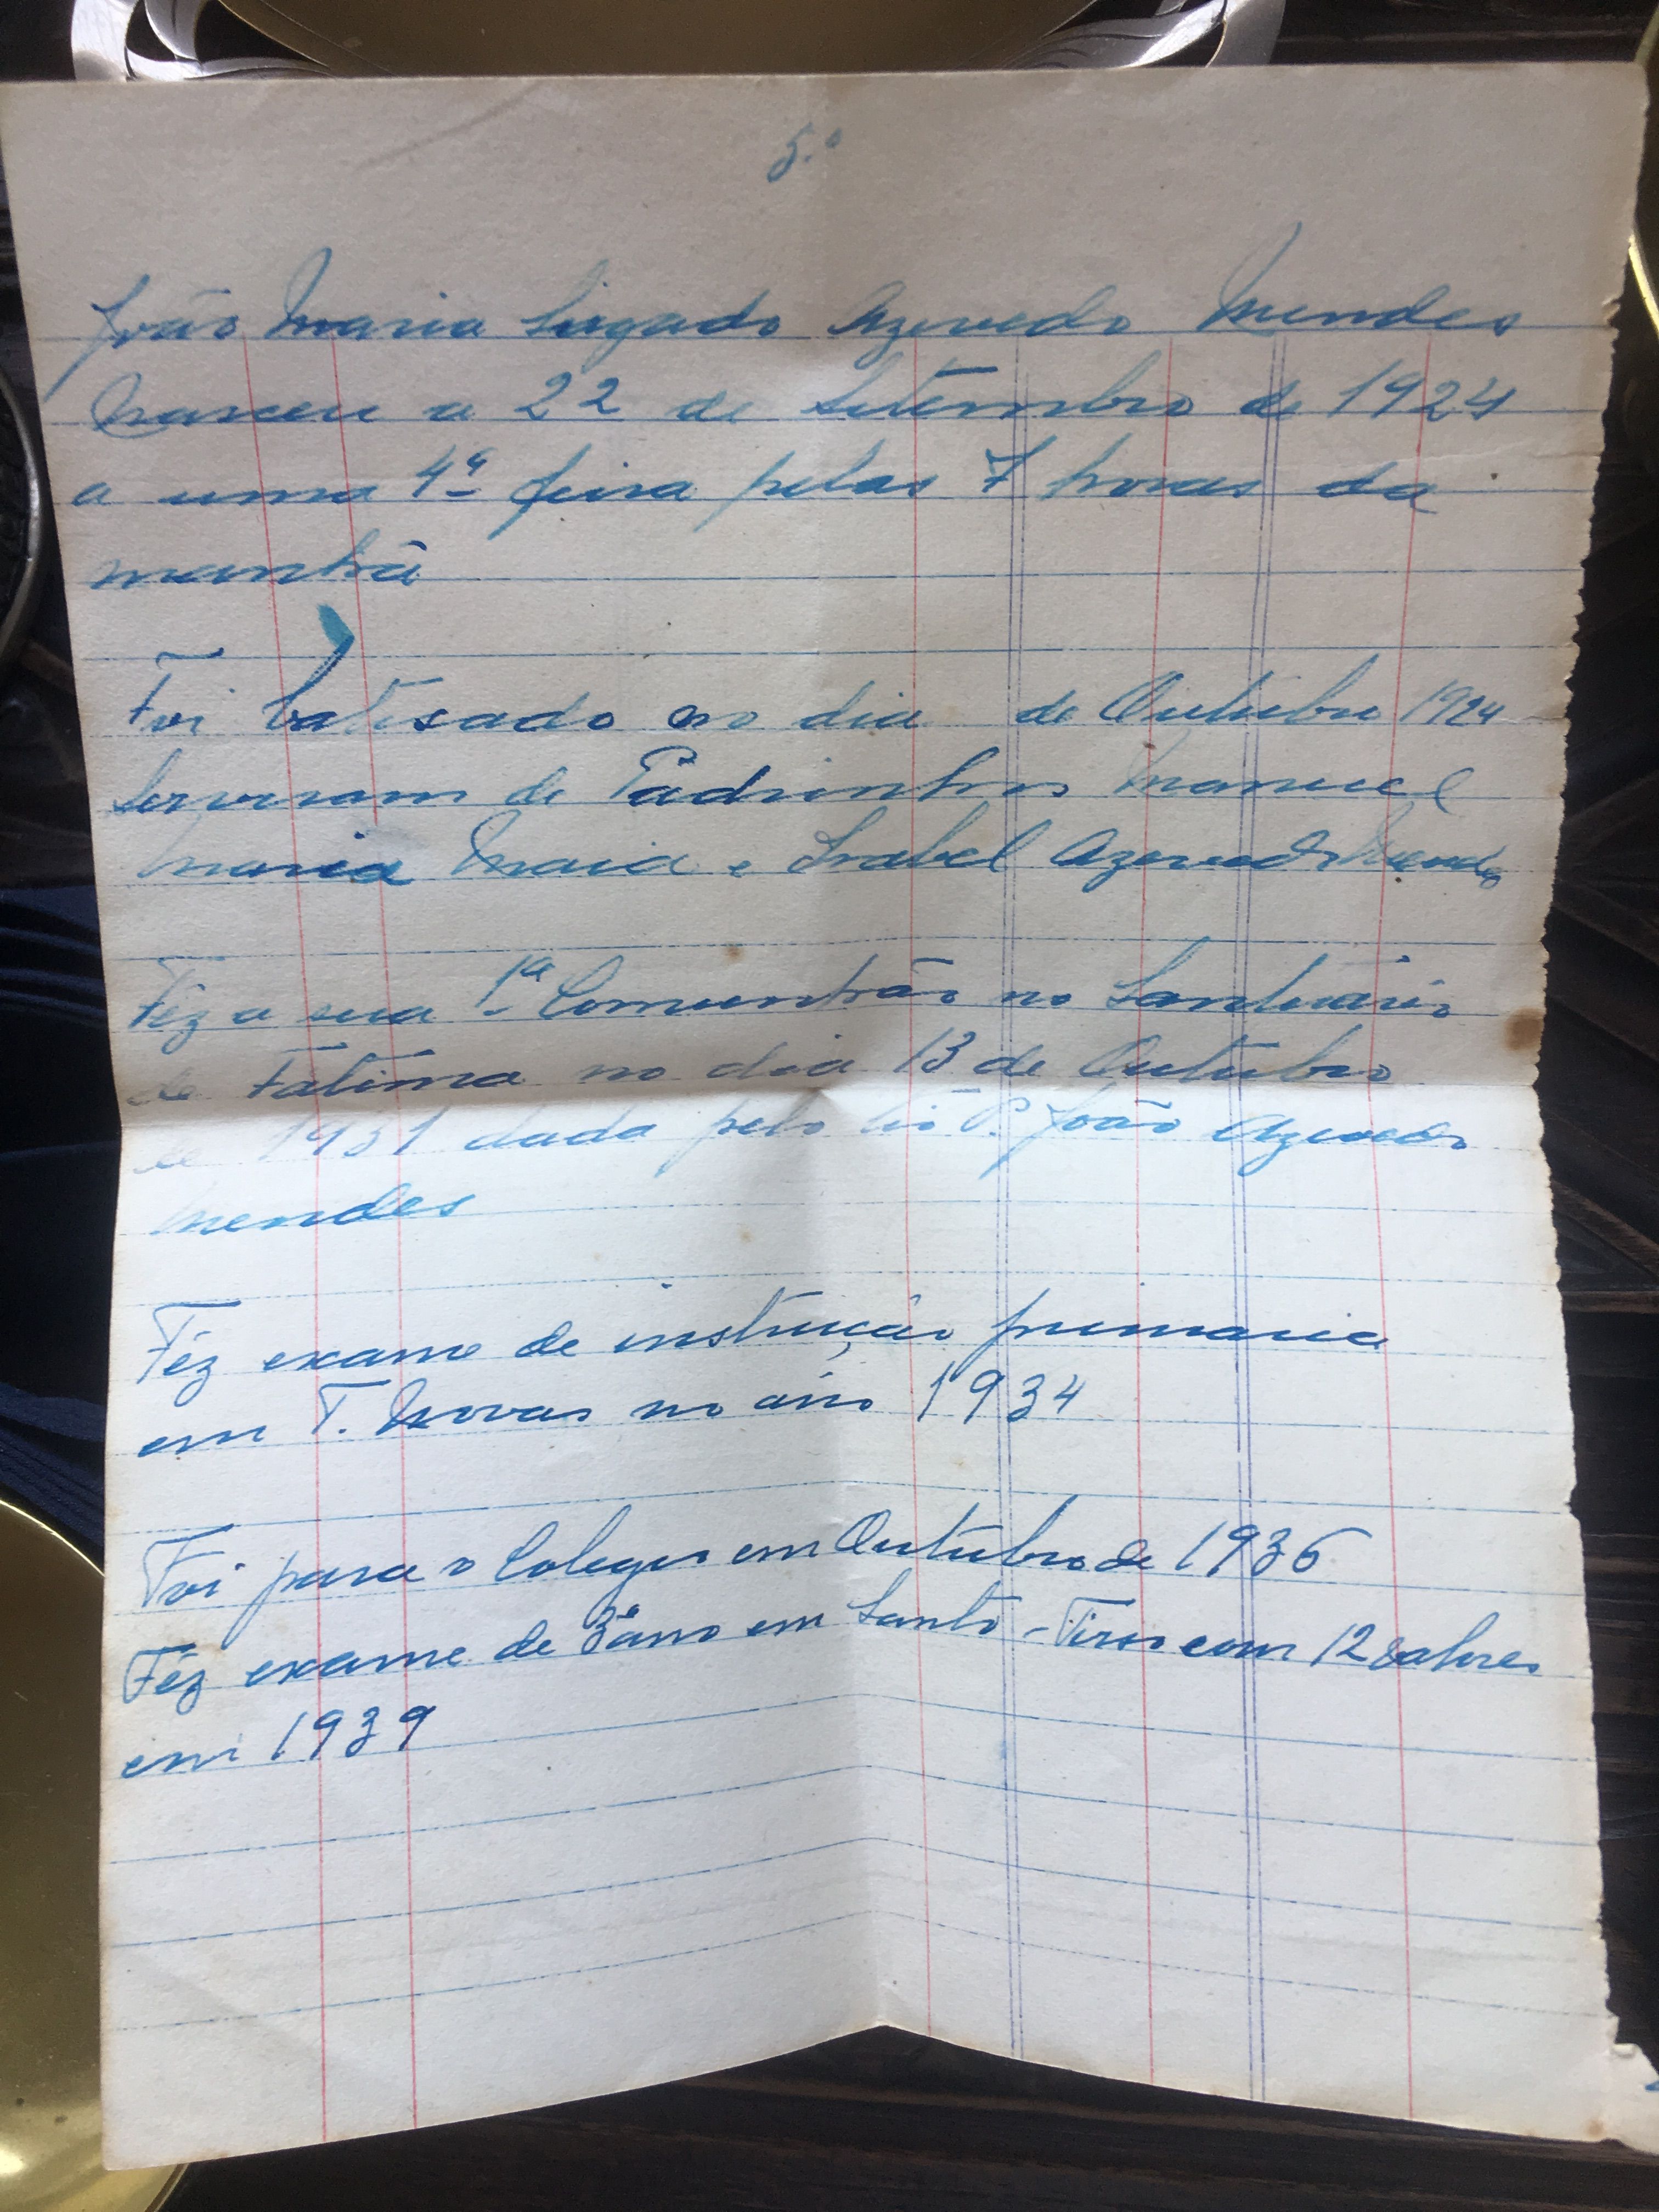 5.º
João Maria Azevedo Mendes
Nasceu a 22 de Setembro de 1924
a uma 4ª feira pelas 7 horas da
manhã
Foi batisado no dia de Outubro 1924
Serviram de Padrinhos Manuel
Maria Maia e Isabel Azevedo Mendes
Fêz a sua 1ª Comunhão no Santuário
de Fatima no dia 13 de Outubro
de 1931 dada pelo tio P. João Azevedo
Mendes
Féz exame de instrução primaria
em T. Novas no ano 1934
Foi para o Colegio em Outubro de 1936
Féz exame de 3º ano em Santo-Tirso com 12 valores
em 1939